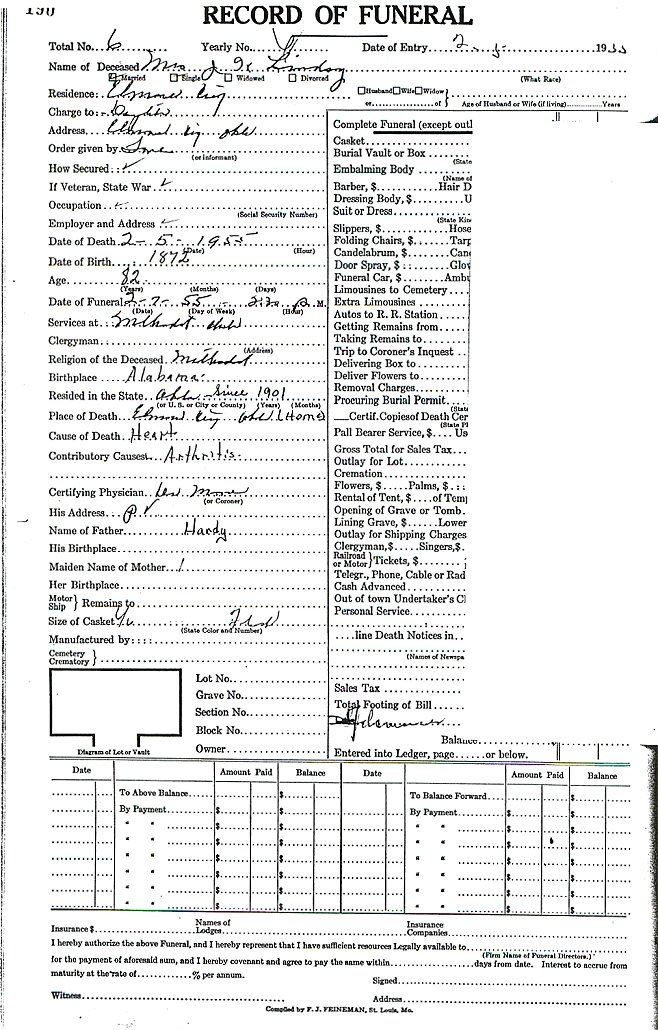 190
RECORD OF FUNERAL
Total No. 6 Yearly No. Date of Entry 2 - 5 - 1955
Name of Deceased Mrs. J. W. Lindsay (What Race)
Married Single Widowed Divorced
Residence: Elmore City Husband Wife Widow or of } Age of Husband or Wife (if living) Years
Charge to:
Address Elmore City Okla
Order given by Same (or informant)
How Secured: ✓
If Veteran, State War ✓
Occupation (Social Security Number)
Employer and Address
Date of Death 2 - 5 - 1955 (Date) (Hour)
Date of Birth 1872
Age 82 (Years) (Months) (Days)
Date of Funeral 2-7-55 2:30 P. M. (Date) (Day of Week) (Hour)
Services at: Methodist (Address)
Clergyman:
Religion of the Deceased Methodist
Birthplace Alabama
Resided in the State Okla Since 1901 (or U. S. or City or County) (Years) (Months)
Place of Death Elmore City Okla (Home)
Cause of Death Heart
Contributory Causes Arthritis
Certifying Physician (or Coroner)
His Address P. V.
Name of Father Hardy
His Birthplace
Maiden Name of Mother
Her Birthplace
Motor Ship } Remains to
Size of Casket (State Color and Number)
Manufactured by::::
Cemetery Crematory }
Lot No.
Grave No.
Section No.
Block No.
Owner
Diagram of Lot or Vault
Complete Funeral (except outl
Casket
Burial Vault or Box (State
Embalming Body (Name of
Barber, $ Hair D
Dressing Body, $ U
Suit or Dress (State Kin
Slippers, $ Hose
Folding Chairs, $ Tarp
Candelabrum, $ Can
Door Spray, $ Glov
Funeral Car, $ Amb
Limousines to Cemetery
Extra Limousines
Autos to R. R. Station
Getting Remains from
Taking Remains to
Trip to Coroner's Inquest
Delivering Box to
Deliver Flowers to
Removal Charges
Procuring Burial Permit (State
Certif. Copies of Death Cer (State Pl
Pall Bearer Service, $ Us
Gross Total for Sales Tax
Outlay for Lot
Cremation
Flowers, $ Palms, $
Rental of Tent, $ of Tem
Opening of Grave or Tomb
Lining Grave, $ Lower
Outlay for Shipping Charges
Clergyman, $ Singers, $
Railroad or Motor } Tickets, $
Telegr., Phone, Cable or Rad
Cash Advanced
Out of town Undertaker's Cl
Personal Service
line Death Notices in
(Names of Newspa
Sales Tax
Total Footing of Bill
Balance
Entered into Ledger, page or below.
Date Amount Paid Balance Date Amount Paid Balance
To Above Balance $ To Balance Forward $
By Payment $ $ By Payment $ $
" " $ $ " " $ $
" " $ $ " " $ $
" " $ $ " " $ $
" " $ $ " " $ $
" " $ $ " " $ $
" " $ $ " " $ $
Insurance $ Names of Lodges Insurance Companies
I hereby authorize the above Funeral, and I hereby represent that I have sufficient resources Legally available to
(Firm Name of Funeral Directors.)
for the payment of aforesaid sum, and I hereby covenant and agree to pay the same within days from date. Interest to accrue from
maturity at the rate of % per annum.
Signed
Witness Address
Compiled by F. J. FEINEMAN, St. Louis, Mo.